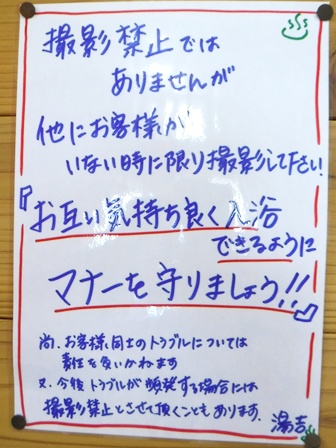 撮影禁止では
ありませんが
他にお客様が
いない時に限り撮影して下さい!
『お互い気持ち良く入浴
できるように
マナーを守りましょう!!』
尚、お客様同士のトラブルについては
責任を負いかねます
又、今後トラブルが頻発する場合には
撮影禁止とさせて頂くこともあります。
湯吉